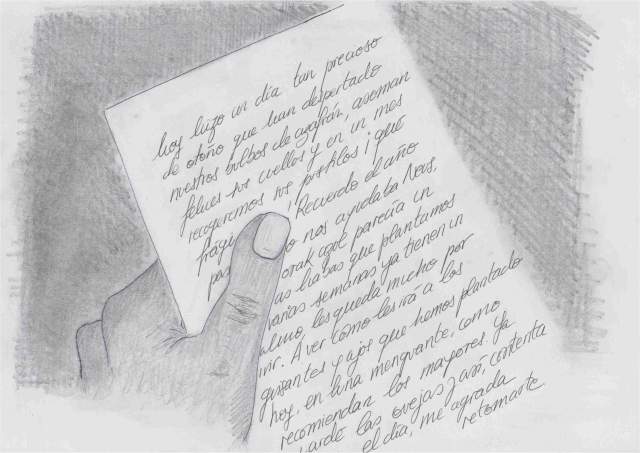 hoy hizo un día tan precioso
de otoño que han despertado
nuestros bulbos de azafrán, asoman
felices sus cuellos y en un mes
recogeremos sus pistilos ¡qué
frági ! Recuerdo el año
pas o nos ayudaba Neus,
orak azul parecía un
as habas que plantamos
varias semanas ya tienen un
almo, les queda mucho por
vir. A ver cómo les irá a los
guisantes y ajos que hemos plantado
hoy, en luna menguante, como
recomiendan los mayores. Ya
ardé las ovejas y así, contenta
el día, me agrada
retomarte